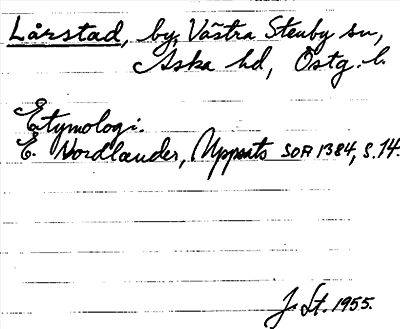 Lårstad, by, Västra Stenby sn,
Aska hd, Östg. l.
Etymologi:
E. Nordlander, Uppsats SOA 1384, s. 14.
J. St. 1955.